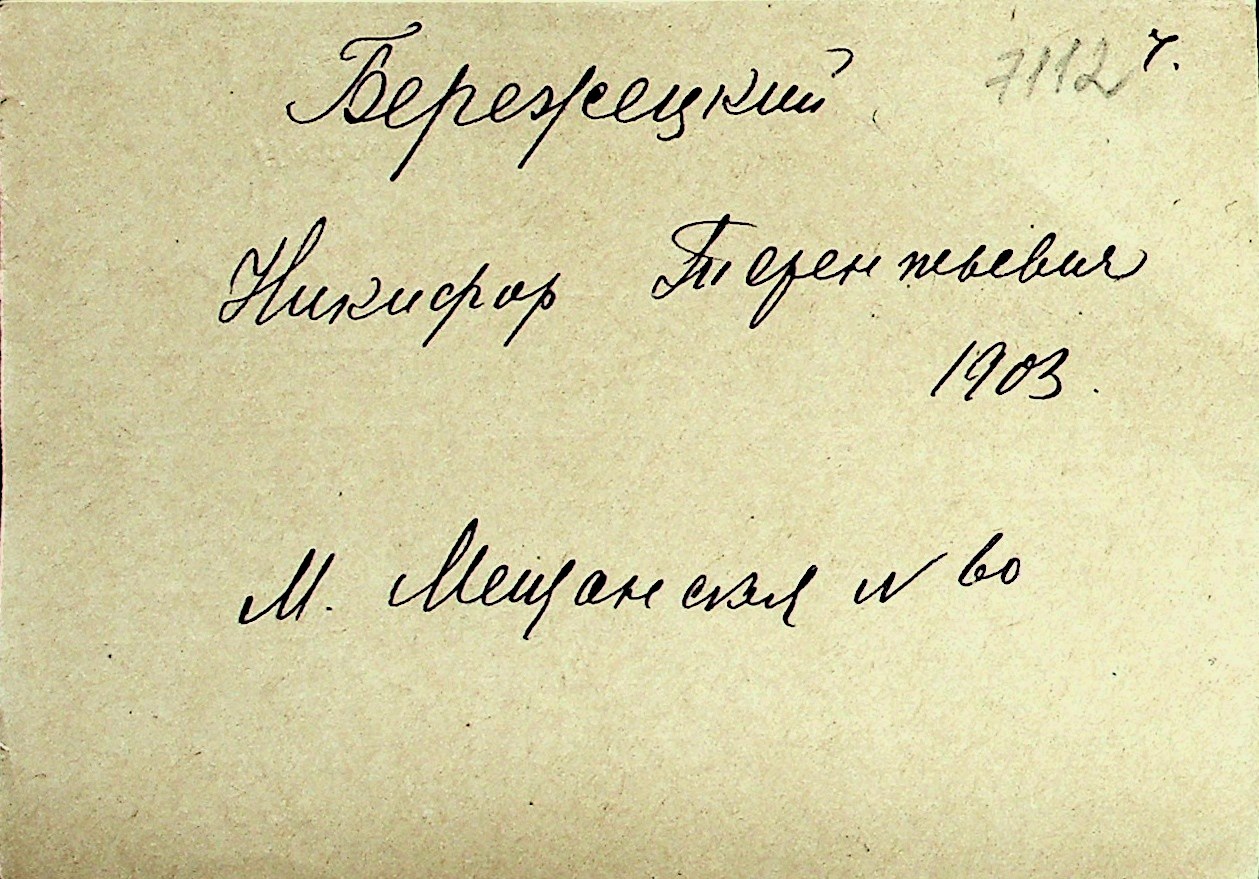 Бережецкий
7112 ч.
Никифор Терентьевич
1903.
М. Мещанская N 60